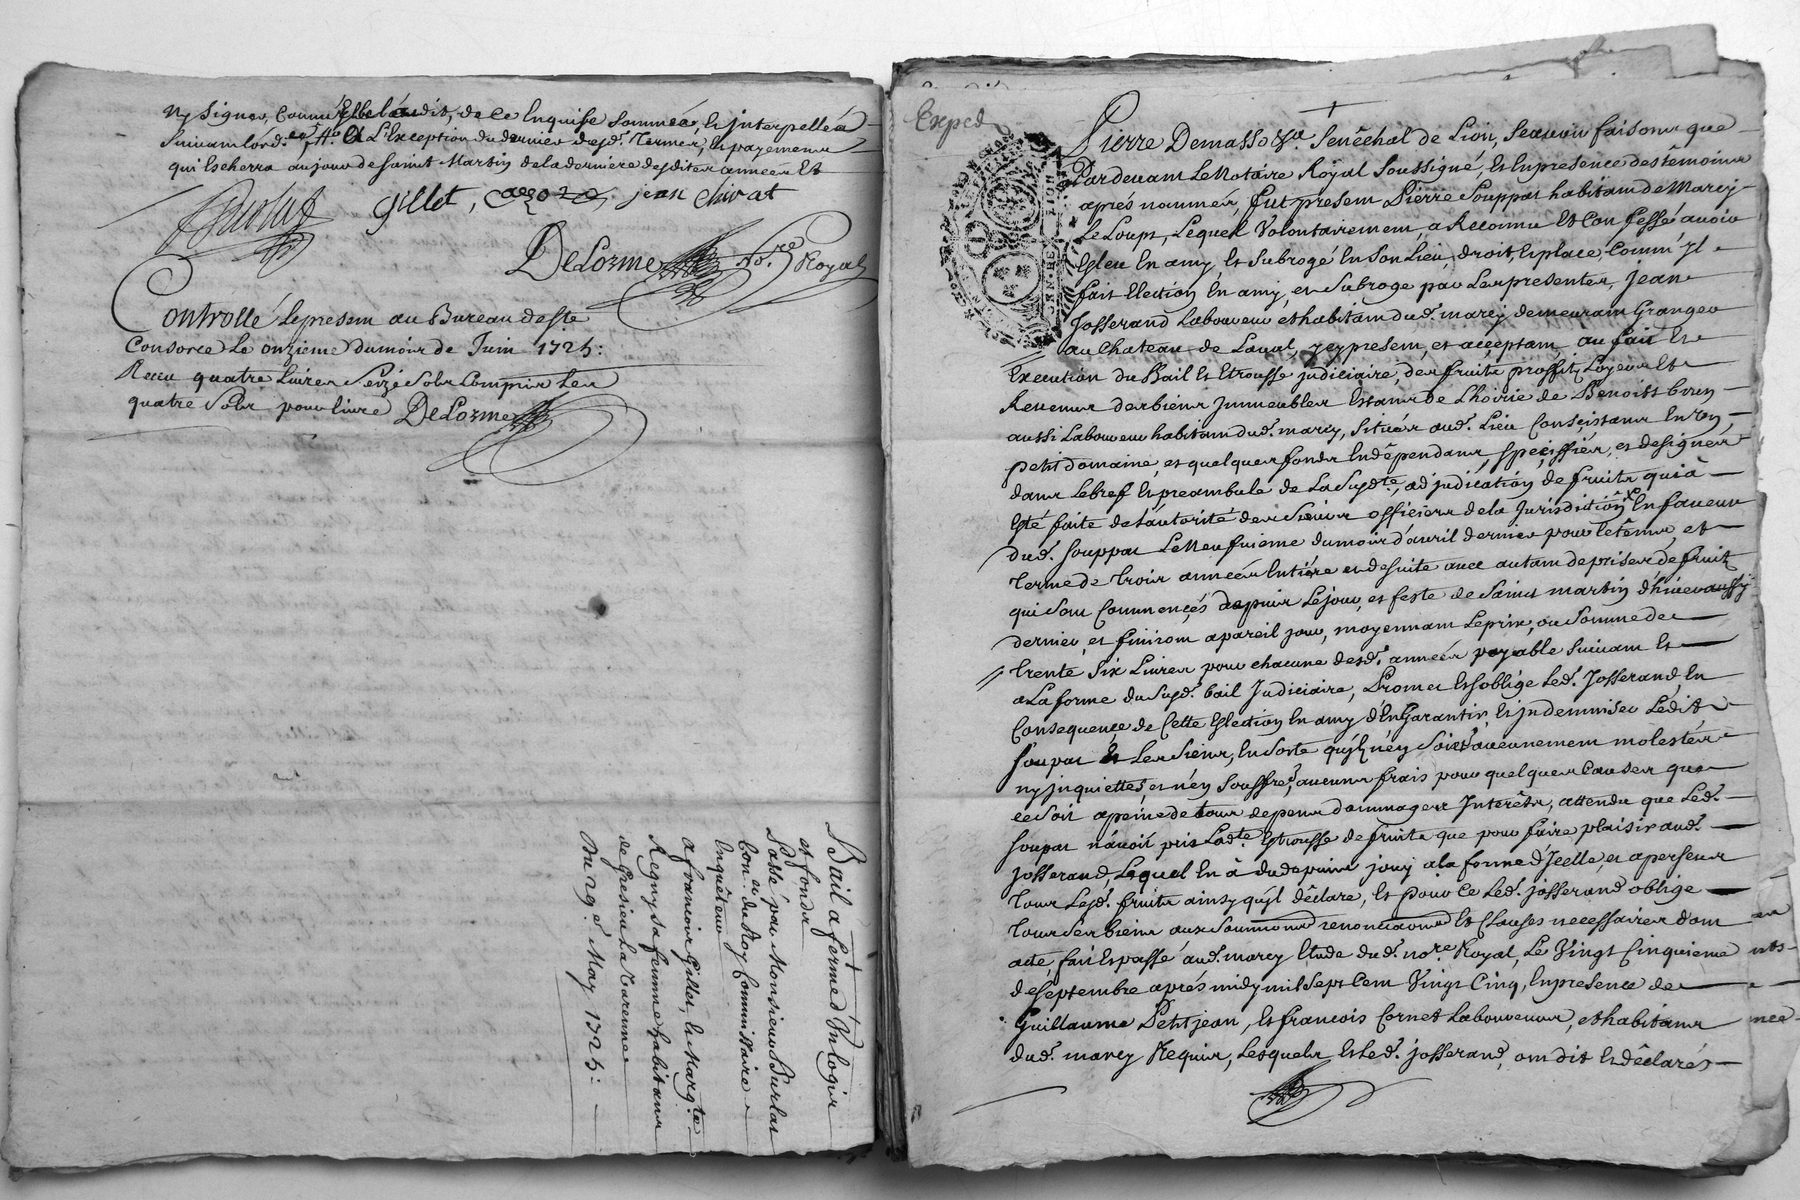 Ny signer, comme elle l'a dit, de ce enquise sommée, et interpellée
suivant l'ord.ce & L'Exception du dernier desd. Termes, et payement
qui Escherra au jour de saint Martin de la derniere desdites années Et
Gillet, jean Chirat
DeLorme No.re Royal
Controllé le present au Bureau de Ste
Consorce Le onzieme du mois de Juin 1725:
Receu quatre Livres Seize Sols Compris Les
quatre Sols pour livre DeLorme
Bail a ferme d'Un logis
et fonds
Passé par Monsieur Burlat
Con.er du Roy Commissaire
Enquêteur
a francois Gillet, et Marg.te
Regny sa femme habitans
de Gresieu La Varenne
Du 29.e May 1725:
Exped
GEN. DE LION
Pierre Demasso S.r Senêchal de Lion, Scavoir faisons que
Pardevant Le Notaire Royal Soussigné, et En presence des têmoins
apres nommés, fut present Pierre Souppat habitant de Marcy
Le Loups, Lequel Volontairement, a Reconnu Et Confessé avoir
Esleu En amy, et Subrogé En Son Lieu, droit, et place, Comm' Jl
fait Election En amy, et Subroge par Les presentes, Jean
Josserand Laboureur et habitant dud. marcy demeurant Granger
au Chateau de Laval, jcy present, et acceptant au fait Et
Execution du Bail Et Etrousse judiciaire, des fruits proffits Loyers Et
Revenus des biens Jmmeubles Estans de L'hoirie de Benoist brun
aussi Laboureur habitant dud. marcy, Situés aud. Lieu Consistans En Un
petit domaine, et quelques fonds Endêpendans, specifiés, et designés
dans Le bref Et preambule de La Susd.te, adjudication de fruits qui à
Esté faite de L'autorité des Sieurs officiers de la Jurisdiction En faveur
dud. Souppat Le Neufvieme du mois d'avril dernier pour le têms, et
Terme de Trois années Entiere et de suite avec autant de prises de fruits
qui Sont Commencés depuis Le jour, et feste de Saint martin d'hiver aussy
dernier, et finiront a pareil jour, moyennant Le prix, ou Somme de
trente Six Livres, pour chacune desd. années payable Suivant Et
a La forme du Susd. bail Judiciaire, Promet Et S'oblige Led. Josserand, En
Consequence de Cette Eslection En amy d'En Garantir, et jndemniser Ledit
Soupat Et Les Siens, En Sorte qu'jls n'ey Soient aucunement molestés
ny jnquiettés, et n'ey Souffrent aucuns frais pour quelques Causes que
ce Soit a peine de tous depens dommages Interêts, attendu que Led.
Soupat n'avoit pris Lad.te Etrousse de fruits que pour faire plaisir aud.
Josserand, Lequel En à du depuis jouy a la forme d'Jcelle, et a perseus
Tous Lesd. fruits ainsy qu'jl dêclare, Et pour Ce Led. josserand oblige
Tous Ses biens aux Soumissions renonciations Et Clauses necessaires dont
acte, fait Et passé aud. marcy Etude dud. no.re Royal, Le Vingt Cinquieme
de Septembre aprés midy mil Sept Cent Vingt Cinq, En presence de
Guillaume Petitjean, Et francois Cornet Laboureurs, et habitans
dud. marcy Requis, Lesquels Et Led. josserand, ont dit Et dêclarés